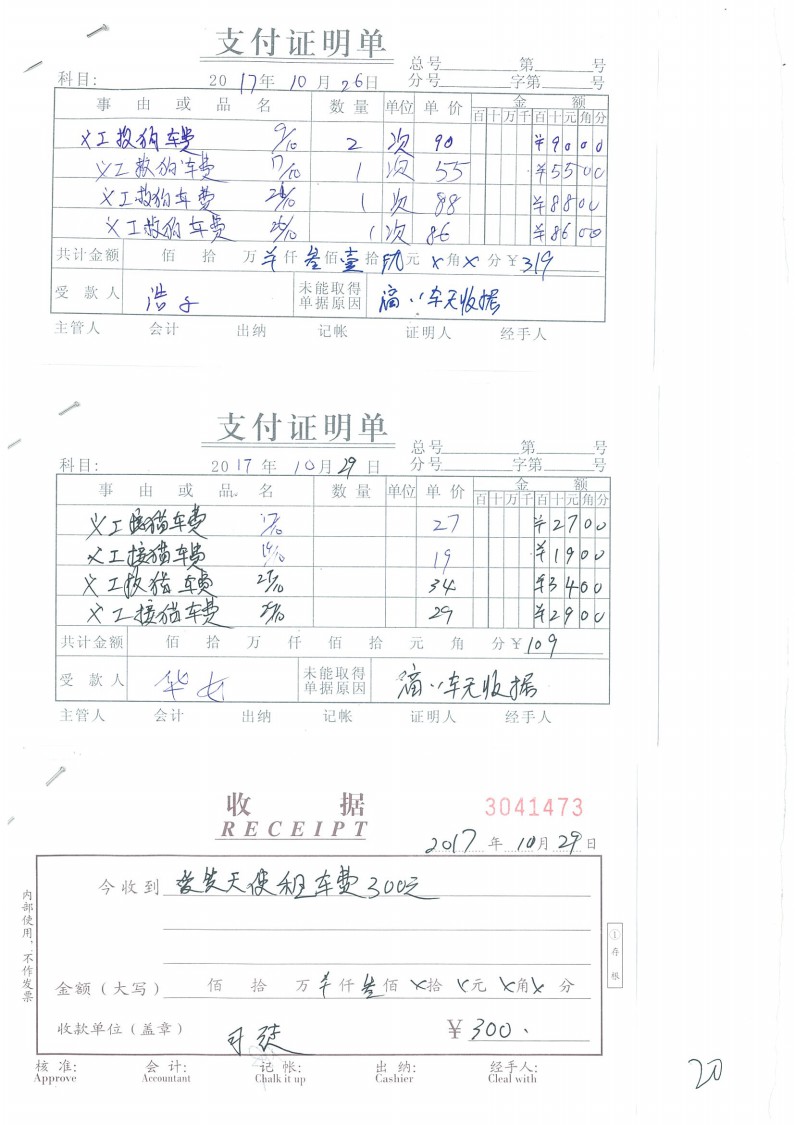 支付证明单
总号 第 号
科目: 2017年10月26日 分号 字第 号
事由或品名 数量 单位 单价 金额
百十万千百十元角分
义工救狗车费 9/10 2 次 90 ¥9000
义工救狗车费 17/10 1 次 55 ¥5500
义工救狗车费 24/10 1 次 88 ¥8800
义工救狗车费 25/10 1 次 86 ¥8600
共计金额 佰 拾 万¥仟叁佰壹拾玖元×角×分¥319
受款人 浩子 未能取得单据原因 滴滴车无收据
主管人 会计 出纳 记帐 证明人 经手人
支付证明单
总号 第 号
科目: 2017年10月29日 分号 字第 号
事由或品名 数量 单位 单价 金额
百十万千百十元角分
义工接猫车费 27 ¥2700
义工接猫车费 19 ¥1900
义工救猫车费 34 ¥3400
义工接猫车费 29 ¥2900
共计金额 佰 拾 万 仟 佰 拾 元 角 分¥109
受款人 华女 未能取得单据原因 滴滴车无收据
主管人 会计 出纳 记帐 证明人 经手人
收据 3041473
RECEIPT
2017年10月29日
今收到 爱笑天使租车费300元
金额(大写) 佰 拾 万¥仟叁佰×拾×元×角×分
收款单位(盖章) 司徒 ¥300.
内部使用,不作发票
①存根
核准: 会计: 记帐: 出纳: 经手人:
Approve Accountant Chalk it up Cashier Cleal with
20